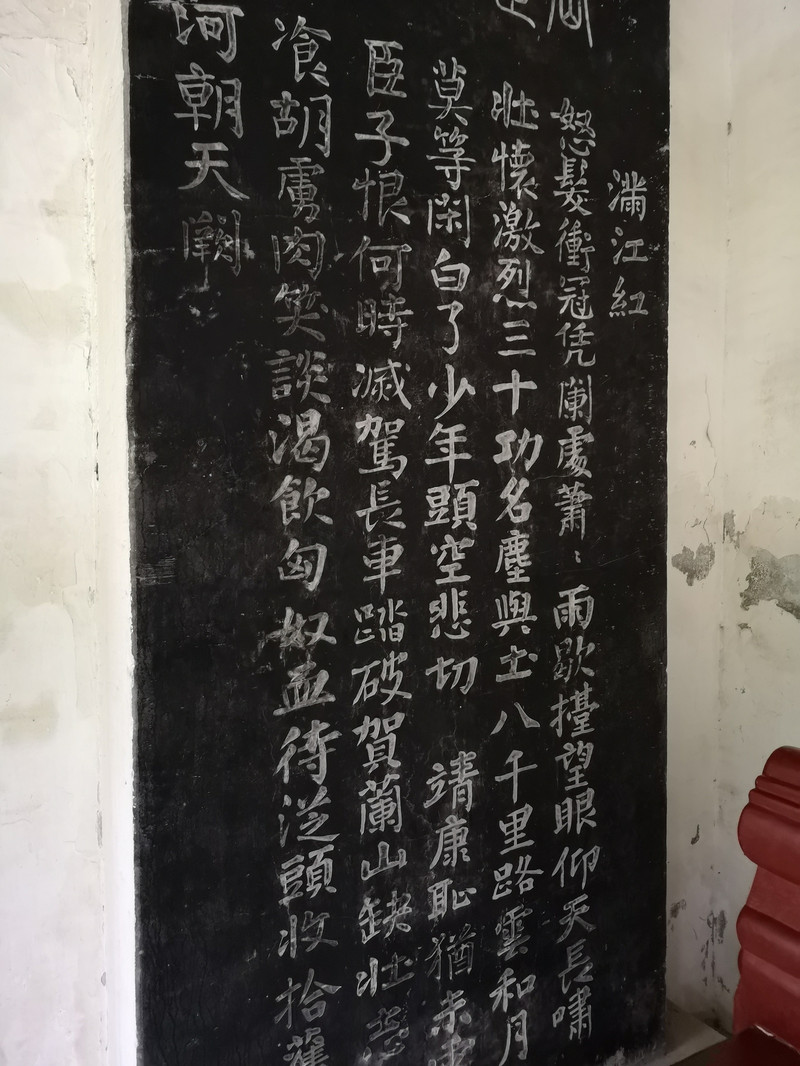 滿江紅
怒髮衝冠凭闌處蕭〻雨歇擡望眼仰天長嘯
壯懷激烈三十功名塵與土八千里路雲和月
莫等閑白了少年頭空悲切 靖康恥猶未
臣子恨何時滅駕長車踏破賀蘭山缺壯志
飡胡虜肉笑談渴飲匈奴血待從頭收拾舊
河朝天闕